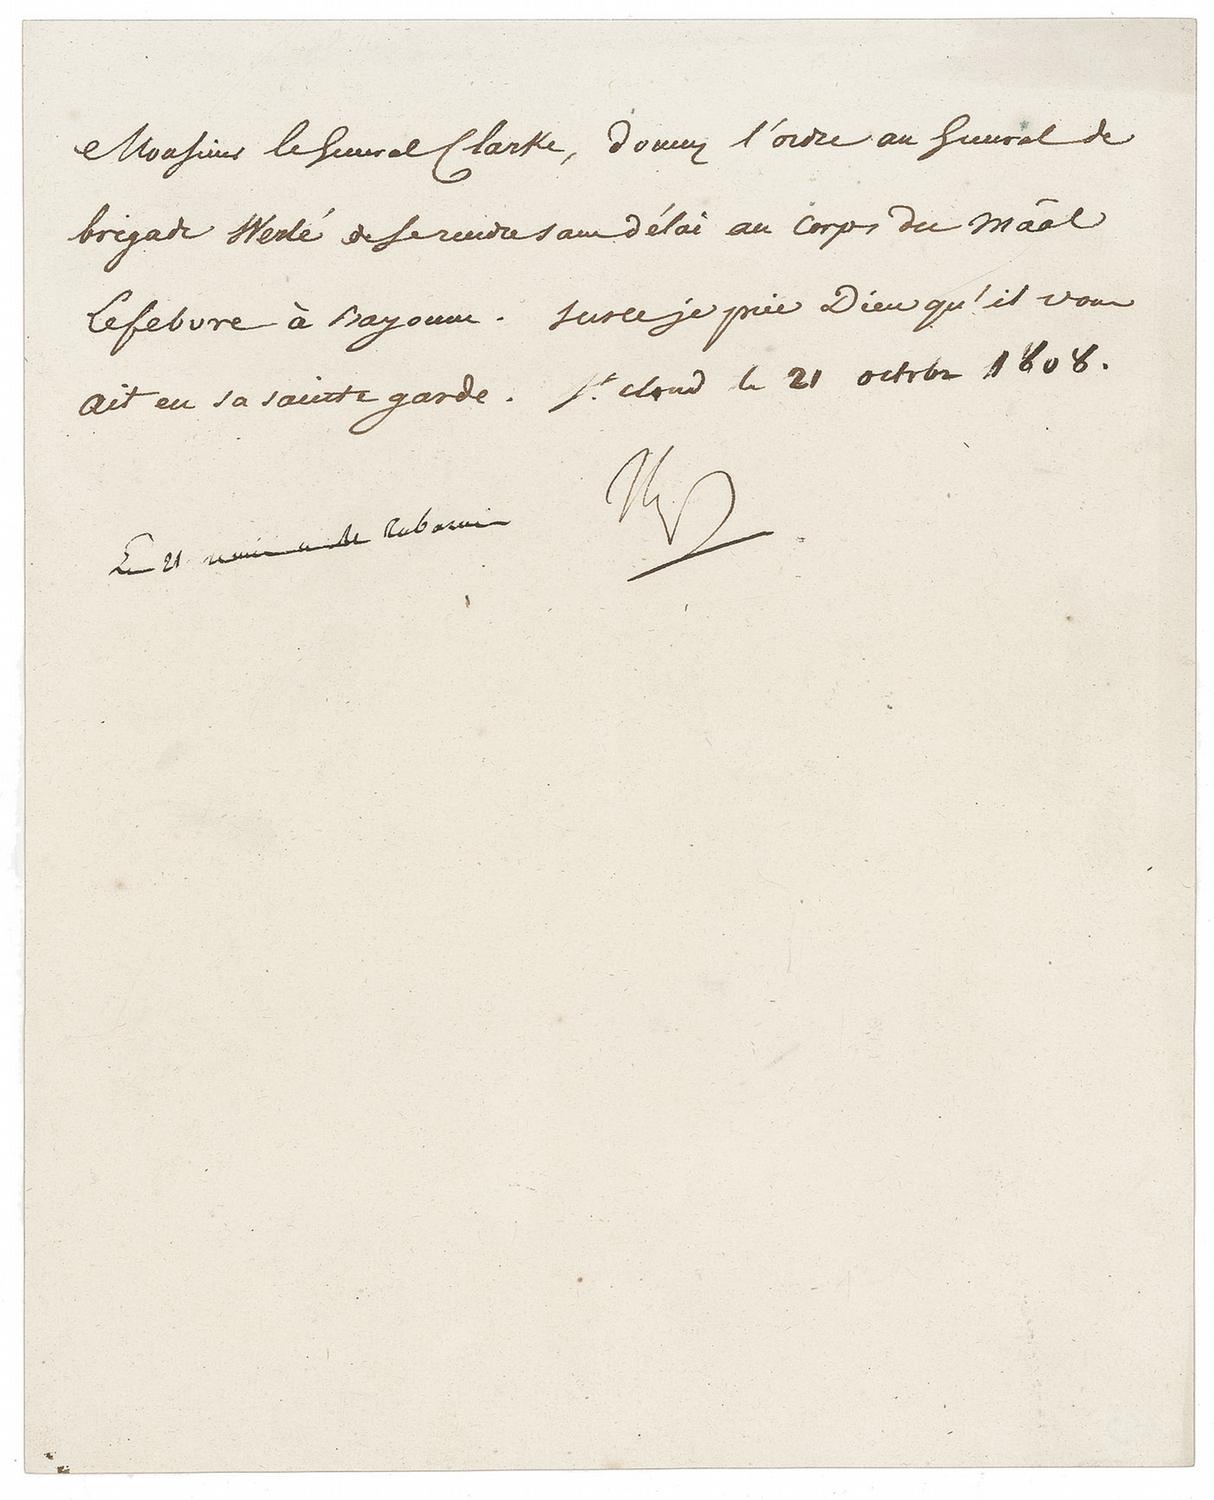 Monsieur le General Clarke, donnez l'ordre au General de
brigade Werlé de se rendre sans délai au Corps du Mãal
Lefebvre à Bayonne. Sur ce je prie Dieu qu'il vous
ait en sa sainte garde. St. Cloud le 21 octobre 1808.
Np
Le 21